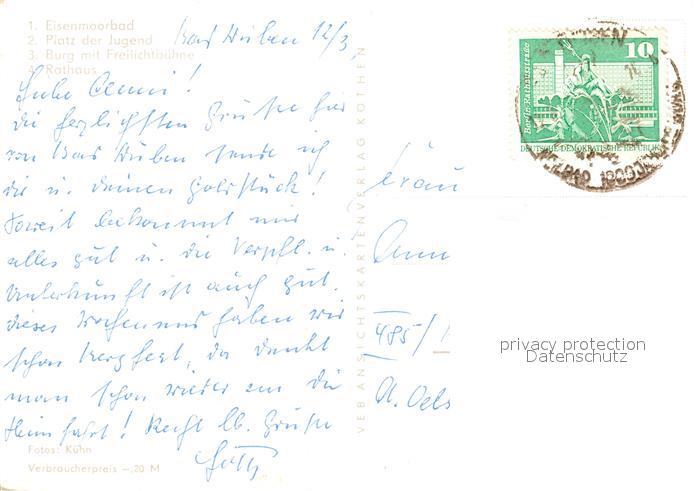 1. Eisenmoorbad
2. Platz der Jugend
3. Burg mit Freilichtbühne
4. Rathaus
Bad Düben 12/3.
Liebe Aenni!
die herzlichsten Grüße hier
von Bad Düben sende ich
dir u. deinen Goldstück!
Soweit bekommt mir
alles gut u. die Verpfl. u.
Unterkunft ist auch gut.
dieses Wochenend haben wir
schon Bergfest, da denkt
man schon wieder an die
Heimfahrt! Recht lb. Grüße
Fotos: Kühn
Verbraucherpreis –,20 M
VEB ANSICHTSKARTENVERLAG KÖTHEN
10
Berlin · Rathausstraße
DEUTSCHE DEMOKRATISCHE REPUBLIK
Frau
485/1
U. Oels
privacy protection
Datenschutz